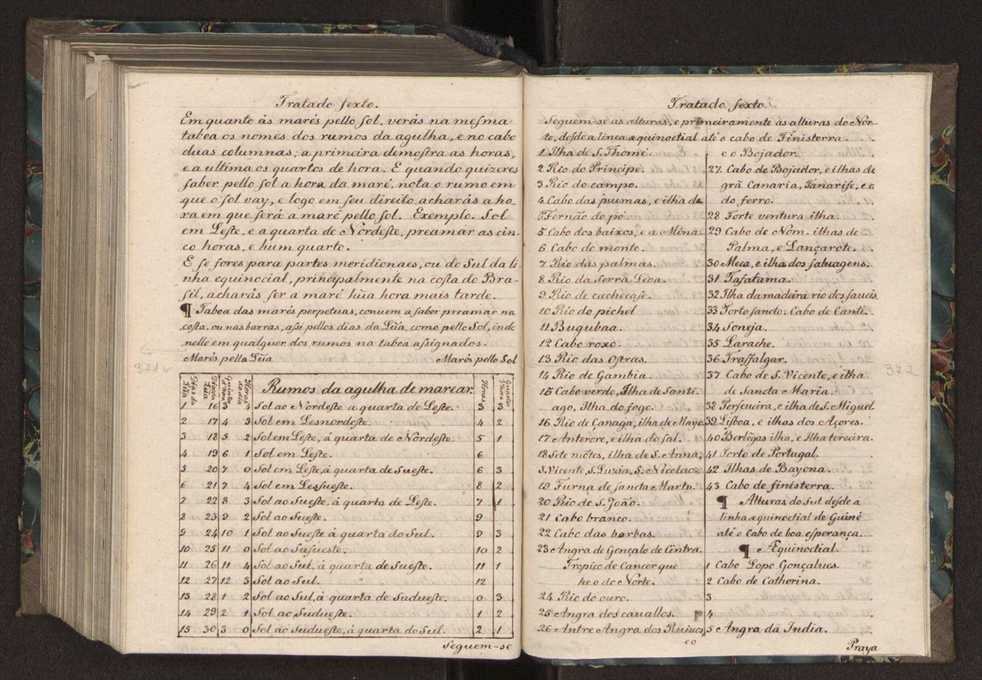 Tratado ſexto.
Em quanto ás marés pello ſol, verás na meſma
taboa os nomes dos rumos da agulha, e no cabo
duas columnas; a primeira demoſtra as horas,
e a ultima os quartos de hora. E quando quizeres
ſaber pello ſol a hora da maré, nota o rumo em
que o ſol vay, e logo em ſeu direito acharás a ho-
ra em que ſerá a maré pello ſol. Exemplo. Sol
em Leſte, e a quarta de Nordeſte, preamar as cin-
co horas, e hum quarto.
E ſe fores para partes meridionaes, ou do Sul da li-
nha equinocial, principalmente na coſta do Bra-
ſil, acharás ſer a maré hũa hora mais tarde.
¶ Taboa das marés perpetuas, conuem a ſaber preamar na
coſta, ou nas barras, aſsi pellos dias da Lũa, como pello Sol, ẽnde
nelle em qualquer dos rumos na taboa aſsignados.
Marés pella Lũa Marés pello Sol
Dias da Lũa Dias da Lũa Horas do dia Rumos da agulha de marear. Horas Quartos
1 16 3 4 Sol ao Nordeſte a quarta de Leſte. 3 3
2 17 4 3 Sol em Lesnordeſte. 4 2
3 18 5 2 Sol em Leſte, á quarta de Nordeſte 5 1
4 19 6 1 Sol em Leſte. 6
5 20 7 0 Sol em Leſte, á quarta de Sueſte. 6 3
6 21 7 4 Sol em Lesſueſte. 8 2
7 22 8 3 Sol ao Sueſte, á quarta de Leſte. 7 1
8 23 9 2 Sol ao Sueſte. 9
9 24 10 1 Sol ao Sueſte á quarta do Sul. 9 3
10 25 11 0 Sol ao Suſueste. 10 2
11 26 11 4 Sol ao Sul, á quarta de Sueſte. 11 1
12 27 12 3 Sol ao Sul. 12
13 28 1 2 Sol ao Sul, á quarta de Sudueſte. 0 3
14 29 2 1 Sol ao Sudueſte. 1 2
15 30 3 0 Sol ao Sudueſto, á quarta do Sul. 2 1
Seguem-se
Tratado ſexto
Seguem-se as alturas, e primeiramente ás alturas do Nor-
te, deſde a linea æquinoctial até o cabo de Finisterra.
1 Ilha de S. Thomé
2 Rio do Principe.
3 Rio do campo.
4 Cabo das puemas, e ilha de
Fernão do pó.
5 Cabo dos baixos, e a Mina.
6 Cabo de monte.
7 Rio das palmas.
8 Rio da ſerra Lèoa.
9 Rio de cachegaſe.
10 Rio do pichel
11 Bugubaa.
12 Cabo roxo.
13 Rio das Oſtras.
14 Rio de Gambia.
15 Cabo verde, Ilha de Santi-
ago, Ilha do fogo.
16 Rio de Çanaga, ilha de Mayo
17 Anterote, e ilha do ſal.
18 Sete mõtes, ilha de S. Anna,
S. Vicente, S. Luzia, S. Nicolao
19 Furna de ſancta Marta.
20 Rio de S. João.
21 Cabo branco.
22 Cabo das barbas.
23 Angra de Gonçalo de Cintra.
Tropico de Cancer que
he o do Norte.
24 Rio do ouro.
25 Angra dos cauallos.
26 Antre Angra dos Ruiuos
e o Bojador.
27 Cabo do Bojador, e ilhas de
grã Canaria, Tanarife, e o
do ferro.
28 Forte ventura ilha.
29 Cabo de Nom. ilhas de
Palma, e Lançarote.
30 Meca, e ilha dos ſaluagens.
31 Tafatama.
32 Ilha da madeira rio dos ſaueis
33 Porto ſancto. Cabo de Canti.
34 Soneja.
35 Larache.
36 Traffalgar.
37 Cabo de S. Vicente, e ilha
de Sancta Maria.
38 Perſeueira, e ilha de S. Miguel
39 Liſboa, e ilhas dos Açores.
40 Berlẽgas ilha, e Ilha terceira.
41 Porto de Portugal.
42 Ilhas de Bayona.
43 Cabo de finisterra.
¶ Alturas do Sul desde a
linha æquinoctial de Guiné
até o Cabo de boa eſperança.
¶ Æquinoctial
1 Cabo Lopo Gonçalues.
2 Cabo de Catherina.
3
4
5 Angra da India.
Praya